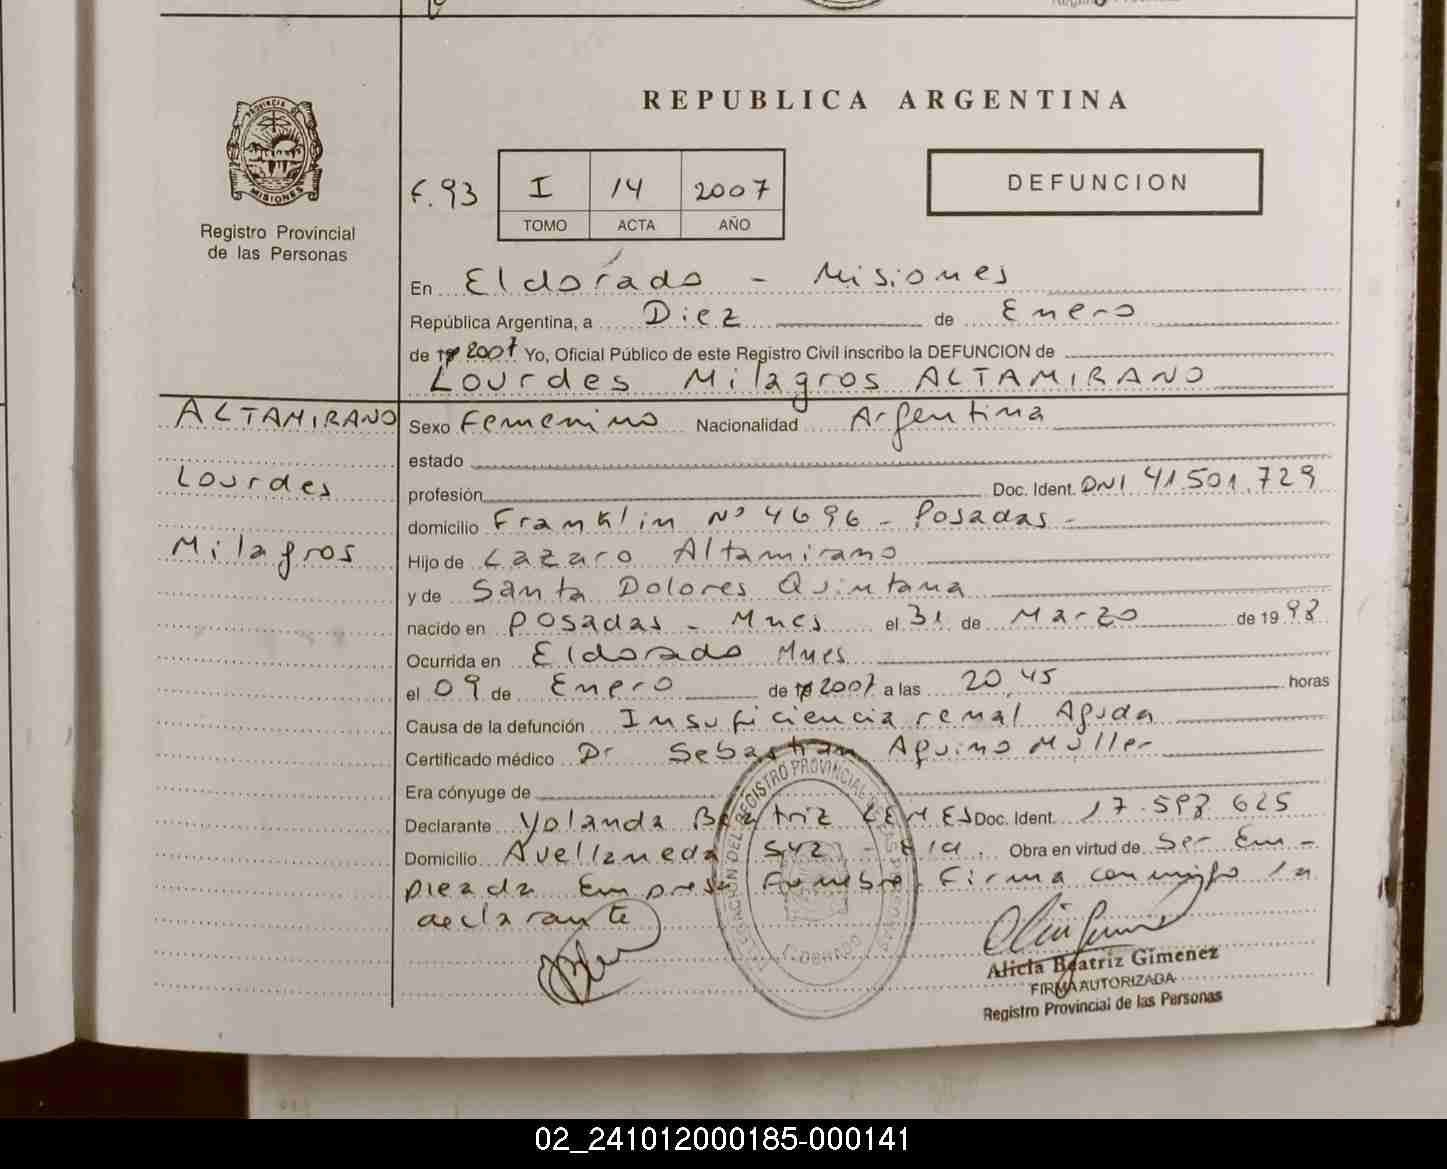 REPUBLICA ARGENTINA
PROVINCIA DE
MISIONES
Registro Provincial
de las Personas
F. 93
I 14 2007
TOMO ACTA AÑO
DEFUNCION
En Eldorado - Misiones
República Argentina, a Diez de Enero
de 19 2007 Yo, Oficial Público de este Registro Civil inscribo la DEFUNCION de
Lourdes Milagros ALTAMIRANO
ALTAMIRANO
Lourdes
Milagros
Sexo Femenino Nacionalidad Argentina
estado
profesión Doc. Ident. DNI 41.501.729
domicilio Franklin Nº 4696 - Posadas -
Hijo de Lazaro Altamirano
y de Santa Dolores Quintana
nacido en Posadas - Mnes el 31 de Marzo de 1998
Ocurrida en Eldorado Mnes
el 09 de Enero de 19 2007 a las 20,45 horas
Causa de la defunción Insuficiencia renal Aguda
Certificado médico Dr Sebastian Aquino Müller
Era cónyuge de
Declarante Yolanda Beatriz LEMES Doc. Ident. 17.598 625
Domicilio Avellaneda - Obra en virtud de Ser Em-
pleada Empresa Funebre. Firma conmigo la
declarante
DELEGACIÓN DEL REGISTRO PROVINCIAL DE LAS PERSONAS
ELDORADO
Alicia Beatriz Gimenez
FIRMA AUTORIZADA
Registro Provincial de las Personas
02_241012000185-000141